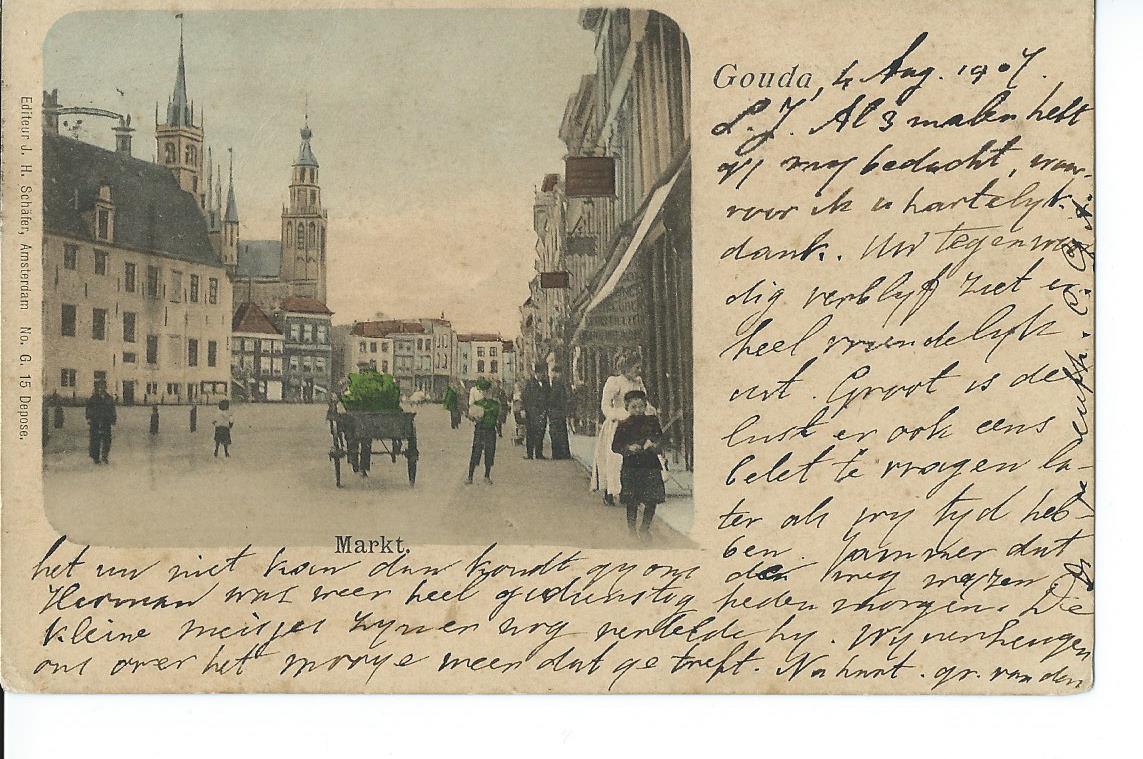 Editeur J. H. Schäfer, Amsterdam No. G. 15 Depose.
Gouda, 4 Aug. 1907.
L. J. Al 3 malen hebt
gij mij bedacht, waar-
voor ik u hartelyk
dank. Uw tegenwoor
dig verblyf ziet er
heel vriendelyk
uit. Groot is de
lust er ook eens
belet te vragen la-
ter als wij tyd heb-
ben. Jammer dat
Markt.
het nu niet kan dan kondt gy ons den weg wyzen
Herman was weer heel gedienstig heden morgen. Die
kleine meisjes zyn er nog vertelde hy. Wy verheugen
ons over het mooye weer dat ge treft. Na hart. gr. van den